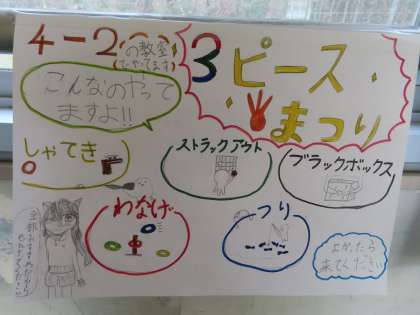 4-2の教室
でやってます
3ピース
まつり
こんなのやって
ますよ!!
しゃてき
ストラックアウト
ブラックボックス
わなげ
つり
よかったら
来てください